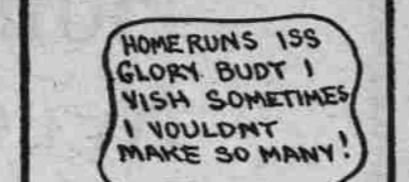 HOMERUNS ISS
GLORY BUDT I
VISH SOMETIMES
I VOULDNT
MAKE SO MANY!